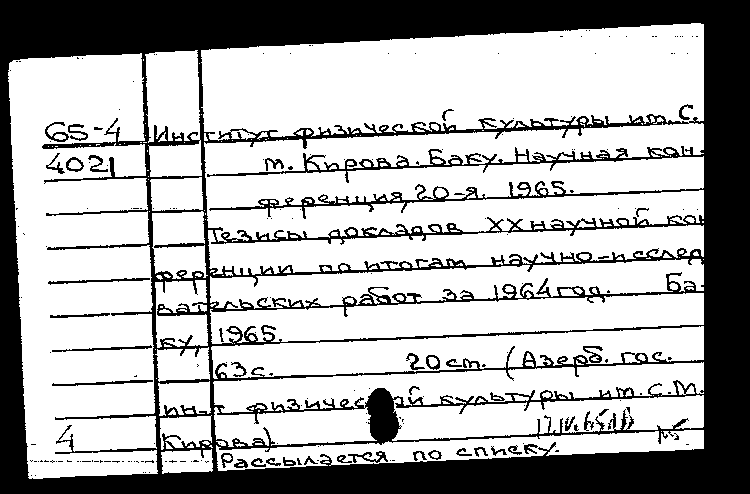 65-4 Институт физической культуры им. С.
4021 м. Кирова. Баку. Научная кон-
ференция, 20-я. 1965.
Тезисы докладов XX научной кон
ференции по итогам научно-исслед
вательских работ за 1964 год. Ба-
ку, 1965.
63 с. 20 см. (Азерб. гос.
ин-т физической культуры им. С.М.
4 Кирова).
Рассылается по списку.